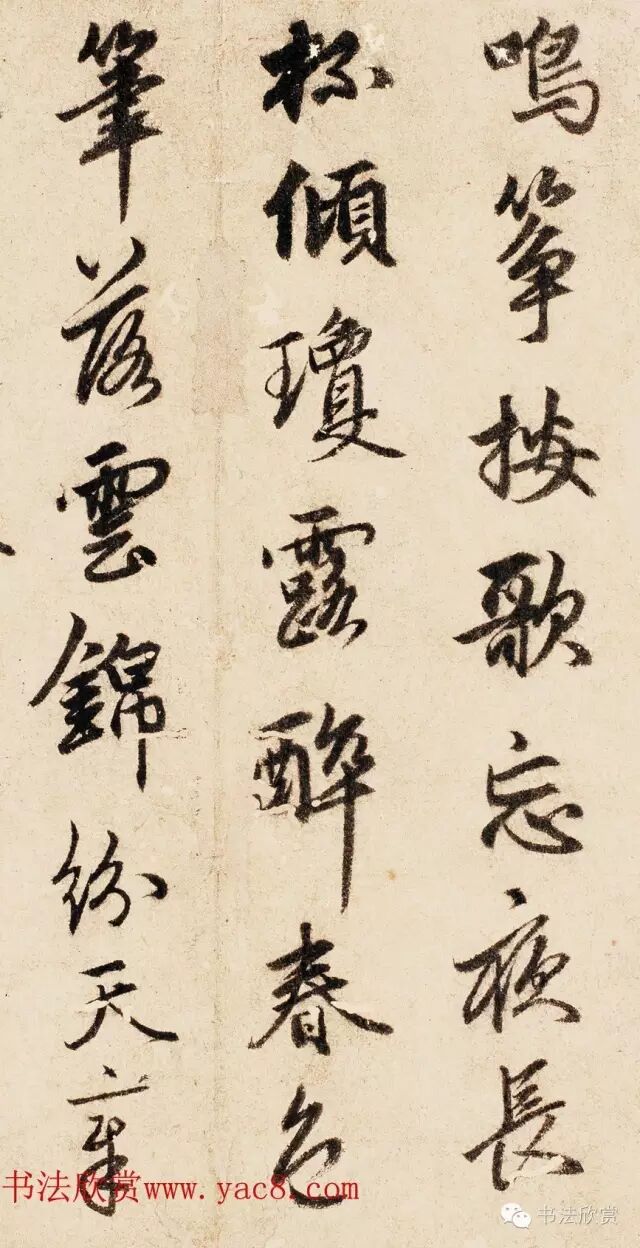 鳴箏按歌忘夜長
杯傾瓊露醉春色
筆落雲錦紛天章
书法欣赏www.yac8.com
书法欣赏